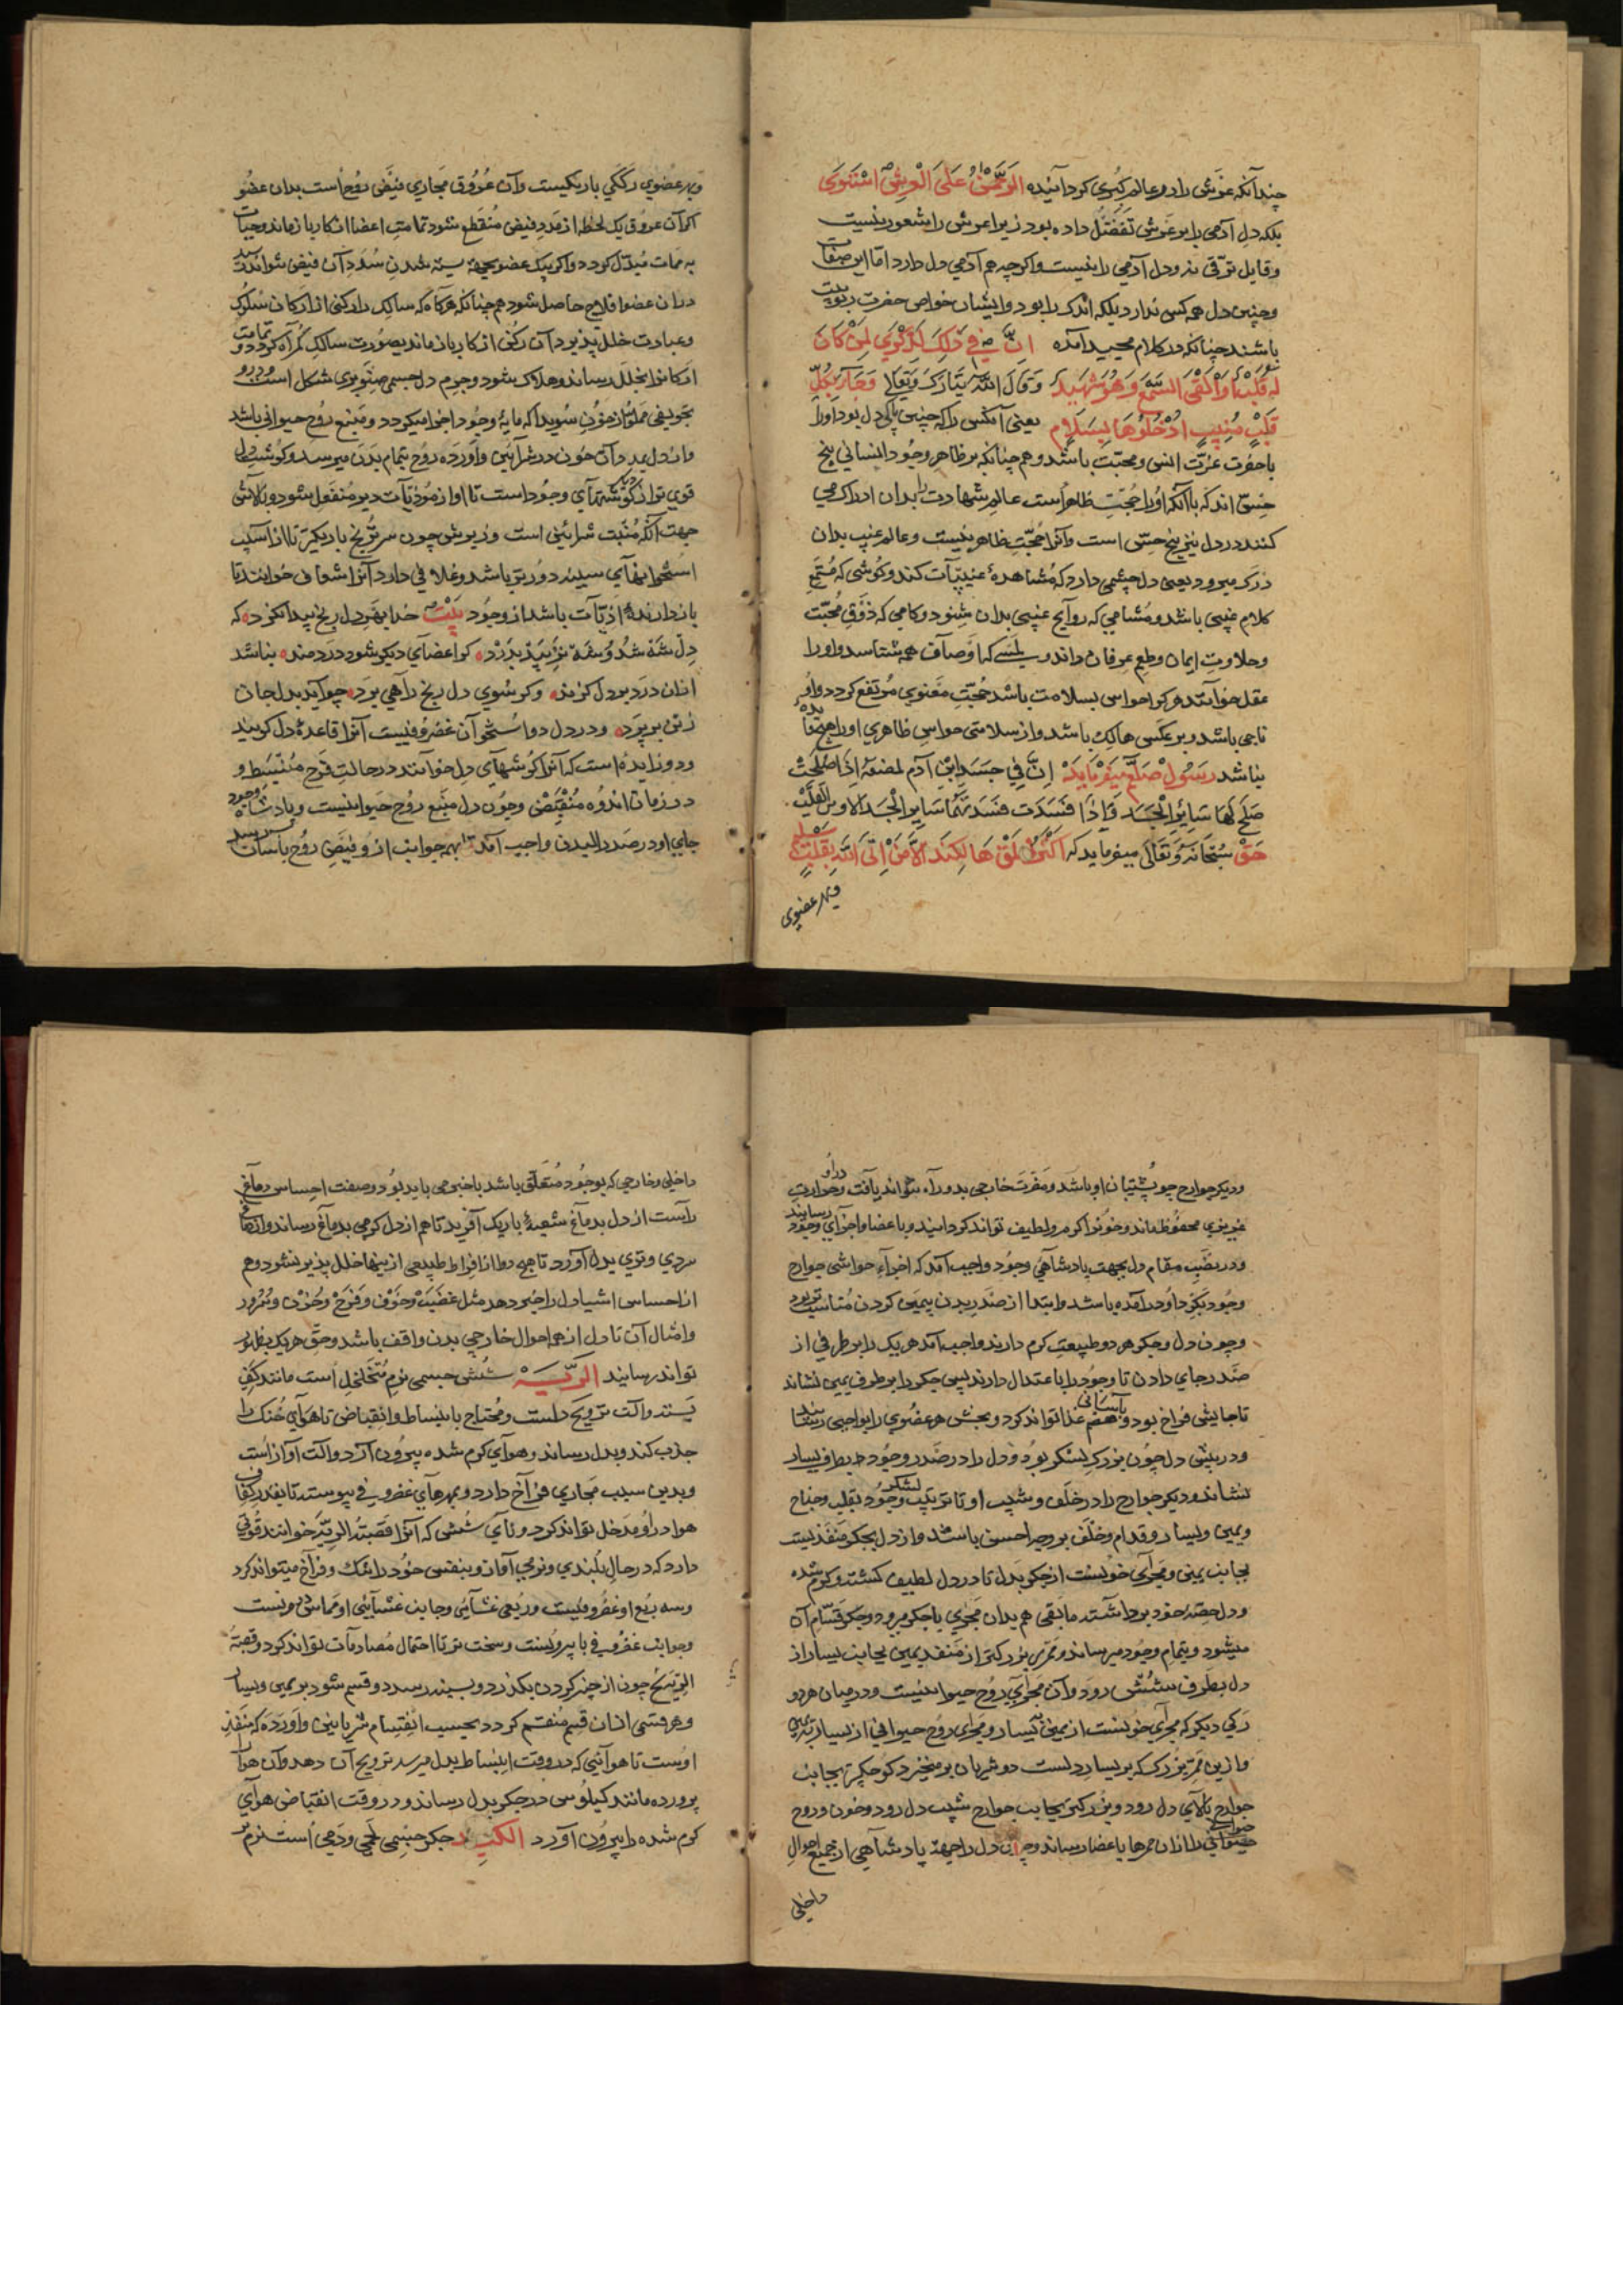 چندآنکه عرش را در عالم کبری کردآنیده الرَّحْمٰنُ عَلَی الْعَرْشِ اسْتَوَی
بلکه دل آدمی را بر عرش تفضّل داده بود زیرا عرش را شعور نیست
وقابل ترقی نه ودل آدمی را نیست واکرچه هم آدمی دل دارد امّا این صفات
وچنین دل همه کس ندارد بلکه اندک را بود وایشان خواص حضرت ربوبیت
باشند چنانکه در کلام مجید آمده اِنَّ فِي ذٰلِكَ لَذِكْرَي لِمَنْ كَانَ
لَهُ قَلْبٌ اَوْ اَلْقَی السَّمْعَ وَهُوَ شَهِیدٌ وقال الله تبارک وتعالی وَجَآءَ بِقَلْبٍ
مُنِیبٍ اُدْخُلُوهَا بِسَلَامٍ یعنی آنکس را که چنین پاکی دل بود اورا
باحضرت عزّت انس ومحبّت باشد وهم چنانکه بر ظاهر وجود انسانی پنج
حسّ اند که باآنکه اورا حجّت ظاهر است عالم شهادت را بدان ادراک می
کنند در دل نیز پنج حسّی است وآنرا حجّت ظاهر نیست وعالم غیب بدان
درک میرود یعنی دل چشمی دارد که مشاهدهٔ غیبیّات کند وکوشی که مستمع
کلام غیبی باشد ومشامی که روایح غیبی بدان شنود وکامی که ذوق محبّت
وحلاوت ایمان وطعم عرفان داند ولمسی که اوصاف همه شناسد واورا
عقل خوانند هرکرا حواسی بسلامت باشد حجّت معنوی مرتفع کردد واو
ناجی باشد وبر عکس هالک باشد واز سلامتی حواس ظاهری اورا هیچ
نباشد رسول صلعم میفرماید اِنَّ فِي جَسَدِ ابْنِ آدَمَ لمضغة اِذَا صَلُحَتْ
صَلَحَ لَهَا سَایِرُ الْجَسَدِ وَاِذَا فَسَدَتْ فَسَدَتْ بِهَا سَایِرُ الْجَسَدِ اَلَا وَهِيَ الْقَلْبُ
حق سبحانه وتعالی میفرماید که اِلَّا مَنْ اَتَی اللّٰهَ بِقَلْبٍ سَلِیمٍ
وبهر عضوی
وبهر عضوی رککی باریکیست وآن عروق مجاری فیض روح است بدان عضو
اکر آن عروق یک لحظه از مدد فیض منقطع شود تمامت اعضا از کار بازماند وحیات
به ممات مبدّل کردد واکر بیک عضو بجهة بسته شدن سدد آن فیض نتواند رسید
دران عضو افلاج حاصل شود هم چنانکه هرکاه که سالک را رکنی از ارکان سلوک
وعبادت خلل پذیرد آن رکن از کار بازماند بصورت سالک کمراه کردد وتمامت
ارکانرا بخلل رساند وهلاک شود وجرم دل جسمی صنوبری شکل است ودرو
تجویفی مملوّ از خون سویدا که مایهٔ وجود اجزا میکردد ومنبع روح حیوانی باشد
واز دل بدر دآن خون در شرائین واورده روح بتمام بدن میرسد وکوشت دل
قوی تر از کوشتهآی دیکر وجود است تا او از موذیات دیر منفعل شود وبالاش
جهت آنکه منبت شرائین است وزیرش چون سر ترنج باریکتر تا از آسیب
استخوانهآی سینه دورتر باشد وغلافی دارد آنرا شغاف خوانند تا
بازدارندهٔ اذیّات باشد از وجود بیت خدا بهر دل رنج پیدا نکرده که
دل شه شد وشه نپذیرد کر اعضآی دیکر شود دردمند نباشد
ازان درد بر دل کزند وکر سوی دل رنج رآهی برد چو آید بدل جان
زتن برپرد ودر دل دو استخوآن غضروفیست آنرا قاعدهٔ دل کویند
ودو زایده است که آنرا کوشهآی دل خوانند در حالت فرح منبسط و
در زمان اندوه منقبض وچون دل منبع روح حیوانیست وپادشاه وجود
جای او در صدر البدن واجب آمد تا بهر جوانب از و فیض روح باسآن رسد
ودیکر جوارح چو پشتیبان او باشد ومضرت خارجی بدو راه نتواند یافت وحرارت
غریزی محفوظ ماند وخونرا کرم ولطیف تواند کردانید وباعضا واجزآی وجود رسانید
ودر نصب مقام دل بجهت پادشاهی وجود واجب آمد که اجزآء حواشی جوارح
وجود بکرداکرد آمده باشد وابتدا از صدر بدن بیمین کردن متناسب تر بود
وچون دل وجکر هر دو طبیعت کرم دارند واجب آمد هریک را بر طرفی از
صدر جای دادن تا وجود را باعتدال دارند پس جکر را بر طرف یمین نشاند
تا جایش فراخ بود وهضم غذا باسانی تواند کرد وبخش هر عضوی را بواجبی رساند
ودر پیش دل چون بزرک لشکر بود ودل را در صدر وجود بطرف یسار
نشاند ودیکر جوارح را در خلف وشیب او تا ترتیب لشکر وجود بقلب وجناح
ویمین ویسار وقدام وخلف بر وجه احسن باشد واز دل بجکر منفذیست
بجانب یمین ومجرآی خونست از جکر بدل تا در دل لطیف کشته وکرم شده
ودل حصّهٔ خود برداشته مابقی هم بدان مجری باجکر میرود وجکر قسّام آن
میشود وبتمام وجود میرساند وممرّی بزرکتر از منفذ یمین بجانب یسار از
دل بطرف شش رود وآن مجرآی روح حیوانیست ودر میان هردو
رکی دیکر که مجرآی خونست از یمین یسار ومجرآی روح حیوانی از یسار به یمین
وازین ممر بزرک که بر یسار دلست دو شریان برمیخیزد کوچکتر بجانب
جوارح بالآی دل رود وبزرکتر بجانب جوارح شیب دل رود وخون وروح
حیوانی را ازان ممرها باعضا رساند وچون دل را جهة پادشاهی از جمیع احوال
داخلی
داخلی وخارجی که بوجود متعلّق باشد باخبر می باید بود وصفت احساس دماغ
راست از دل بدماغ شعبهٔ باریک آفرید تا هم از دل کرمی بدماغ رساند وازدماغ
سردی وتری بدل آورد تا هیچ دو از افراط طبیعی از پنها خلل پذیر نشود وهم
از احساس اشیا دل را خبر دهد مثل غضب وخوف وفرح وحزن وسرور
وامثال آن تا دل از همه احوال خارجی بدن واقف باشد وحق هریک بظهور
تواند رسانید الرّیَة شش جسمی نرم متخلخل است مانند کف
بسته وآلت ترویح دلست ومحتاج بانبساط وانقباض تا هوآی خنک را
جذب کند وبدل رساند وهوآی کرم شده بیرون آرد وآلت آواز است
وبدین سبب مجاری فراخ دارد وبمهرهآی غضروفی پیوسته تا بقدر کفاف
هوا درآو مدخل تواند کرد ونآی شش که آنرا قصبة الریه خوانند قوتی
دارد که در حال بلندی ونرمی آواز وبنفس خود را تنک وفراخ میتواند کرد
وسه ربع او غضروفیست وربعی غشآئی وجانب غشآئی او مماس مریست
وجوانب غضروفی بابیرونست وسخت تر تا احتمال مصادمات تواند کرد وقصبة
الریه چون از چنبر کردن بکذرد وبسینه رسد دو قسم شود بر یمین ویسار
وهر قسمی ازان قسم منقسم کردد بحسب انقسام شریانین واورده که منفذ
اوست تا هوآئی که در وقت انبساط بدل میرسد ترویح آن دهد وآن هوآء
پرورده مانند کیلوس در جکر بدل رساند ودر وقت انقباض هوآی
کرم شده را بیرون آورد الکبد جکر جسمی لحمی ودمی است نرم تر